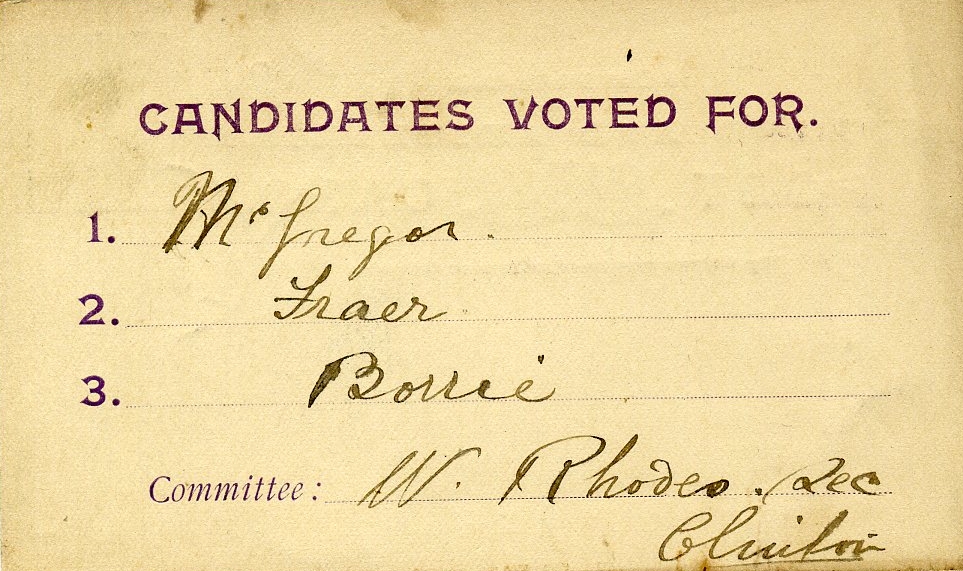 CANDIDATES VOTED FOR.
1. McGregor.
2. Fraer
3. Borrie
Committee: W. Rhodes. Sec
Clinton